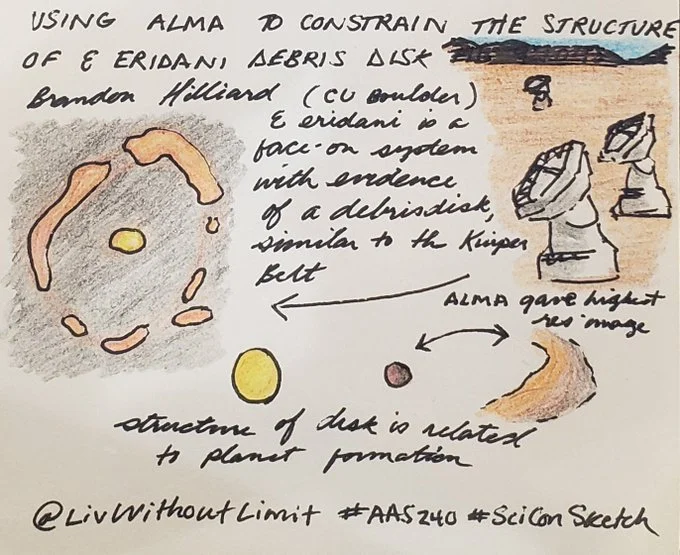 USING ALMA TO CONSTRAIN THE STRUCTURE
OF ε ERIDANI DEBRIS DISK
Brandon Hilliard (CU Boulder)
ε eridani is a
face-on system
with evidence
of a debris disk,
similar to the Kuiper
Belt
ALMA gave highest
res image
structure of disk is related
to planet formation
@LivWithoutLimit #AAS240 #SciConSketch